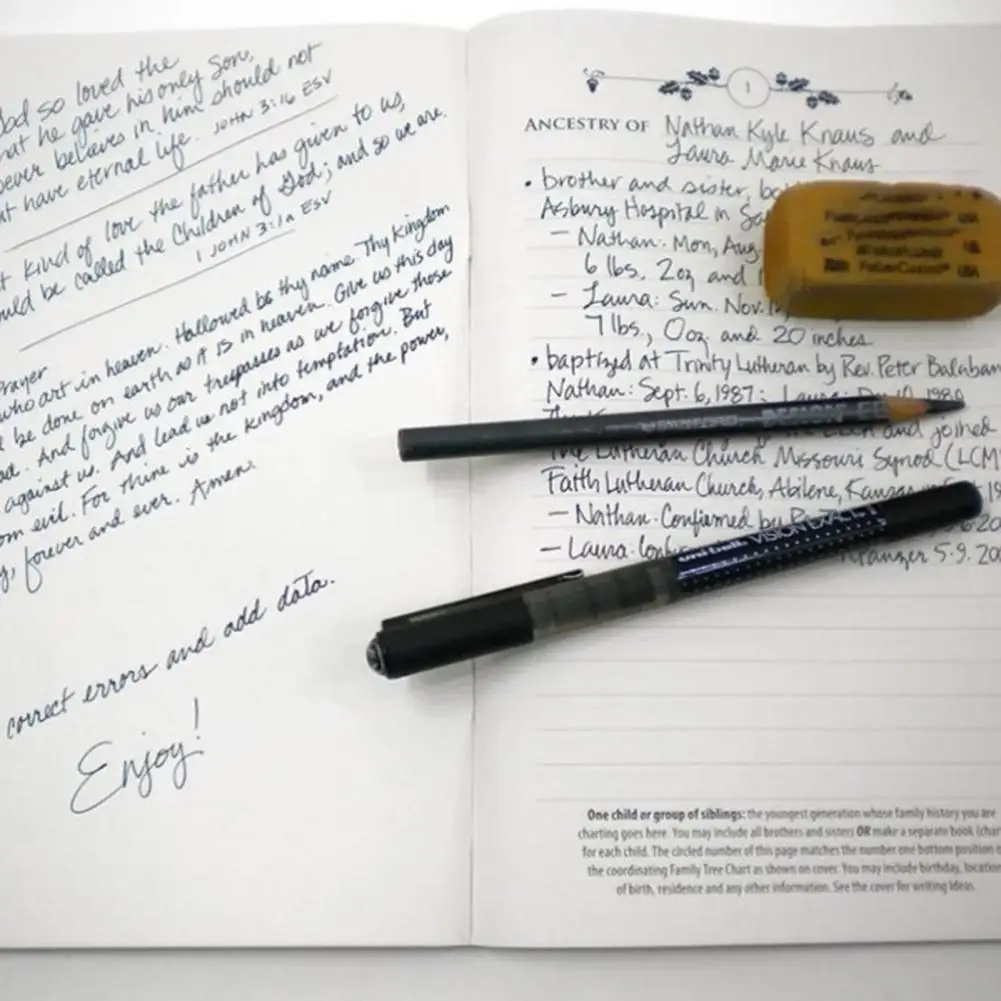 God so loved the
that he gave his only Son,
believes in him should not
have eternal life. JOHN 3:16 ESV
kind of love the father has given to us,
be called the Children of God; and so we are.
1 JOHN 3:1a ESV
Prayer
who art in heaven. Hallowed be thy name. Thy Kingdom
be done on earth as it is in heaven. Give us this day
And forgive us our trespasses as we forgive those
against us. And lead us not into temptation. But
evil. For thine is the kingdom, and the power,
forever and ever. Amen.
correct errors and add data.
Enjoy!
1
ANCESTRY OF Nathan Kyle Knaus and
Laura Marie Knaus
• brother and sister,
Asbury Hospital in
– Nathan: Mon, Aug
6 lbs. 2oz and
– Laura: Sun. Nov.
7 lbs., 0oz. and 20 inches
• baptized at Trinity Lutheran by Rev. Peter
Nathan: Sept. 6, 1987; Laura:
and joined
The Lutheran Church Missouri Synod
Faith Lutheran Church, Abilene, Kansas
– Nathan: Confirmed by
– Laura: 5.9.
USA
FaberCastell USA
DESIGN
uni-ball VISION EXACT
One child or group of siblings: the youngest generation whose family history you are
charting goes here. You may include all brothers and sisters OR make a separate book
for each child. The circled number of this page matches the number one bottom position
the coordinating Family Tree Chart as shown on cover. You may include birthday,
of birth, residence and any other information. See the cover for writing ideas.